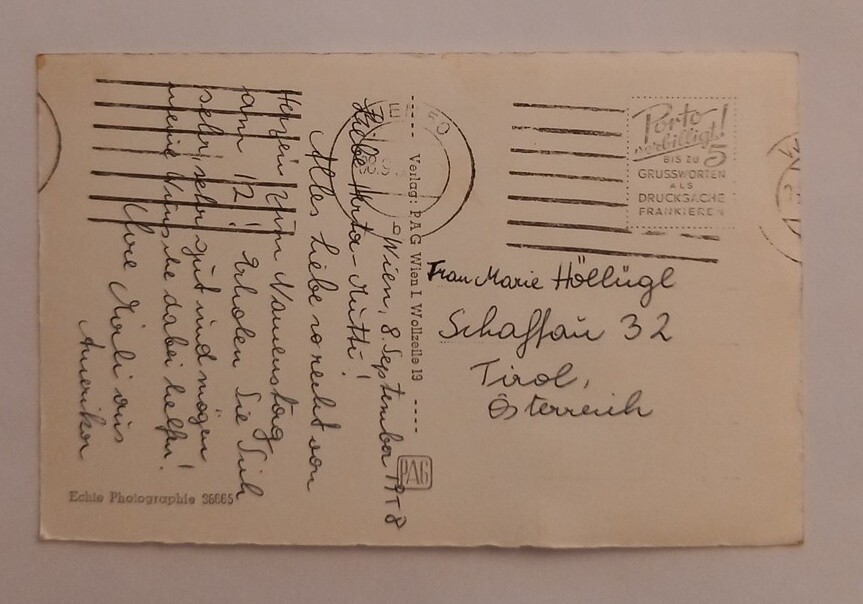 Wien, 8. September 19
Liebe Herta-Mutti!
Alles Liebe so recht von
Herzen zum Namenstag
am 12. Erholen Sie Sich
sehr, sehr gut und mögen
meine Wünsche dabei helfen!
Ihre aus
Amerika
Echte Photographie 36665
Verlag: PAG Wien I. Wollzeile 19
PAG
Porto
verbilligt!
BIS ZU 5
GRUSSWORTEN
ALS
DRUCKSACHE
FRANKIEREN
Frau Marie Höllügl
Schaftau 32
Tirol,
Österreich